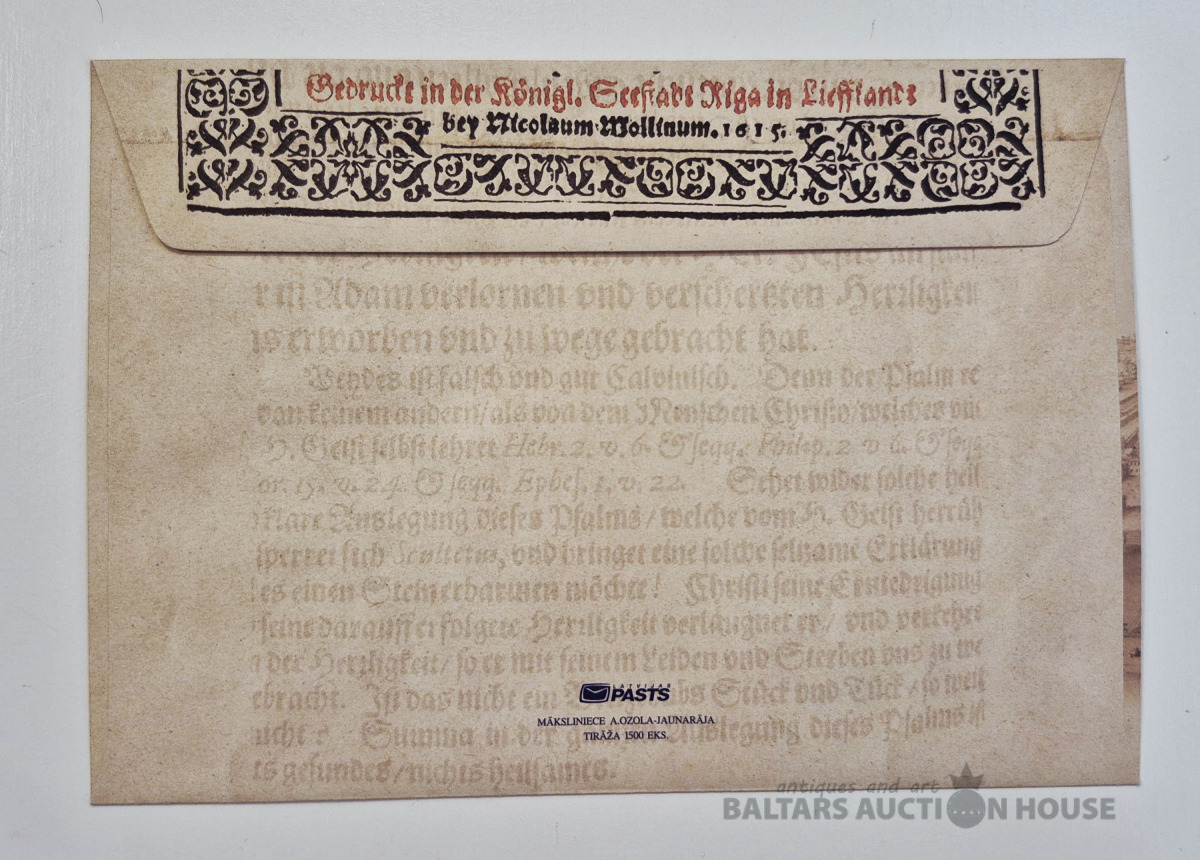 Gedruckt in der Königl. Seestadt Riga in Liefflandt
bey Nicolaum Mollinum. 1615.
r in Adam verlornen vnd verschertzten Herrligkeit
is erworben vnd zu wege gebracht hat.
Beydes ist falsch vnd gut Calvinisch. Denn der Psalm re
van keinem andern/als von dem Menschen Christo/welches
H. Geist selbst lehret Hebr. 2. v. 6. & seqq. Philip. 2 v 6. & seqq.
or. 15. v. 24. & seqq. Ephes. 1. v. 22. Sehet wider solche heil
klare Auslegung dieses Psalms/welche vom H. Geist herrüh
sperret sich Scultetus, vnd bringet eine solche seltzame Erklärung
es einen Stein erbarmen möchte! Christi seine Erniedrigung
seine darauff erfolgete Herrligkeit verläugnet er/ vnd verkehret
der Herrligkeit/so er mit seinem Leiden vnd Sterben vns zu we
ebracht. Ist das nicht ein Stück vnd Tück/so weit
nicht? Summa in der Auslegung dieses Psalms ist
ts gesundes/nichts heilsames.
LATVIJAS
PASTS
MĀKSLINIECE A.OZOLA-JAUNARĀJA
TIRĀŽA 1500 EKS.
antiques and art
BALTARS AUCTION HOUSE